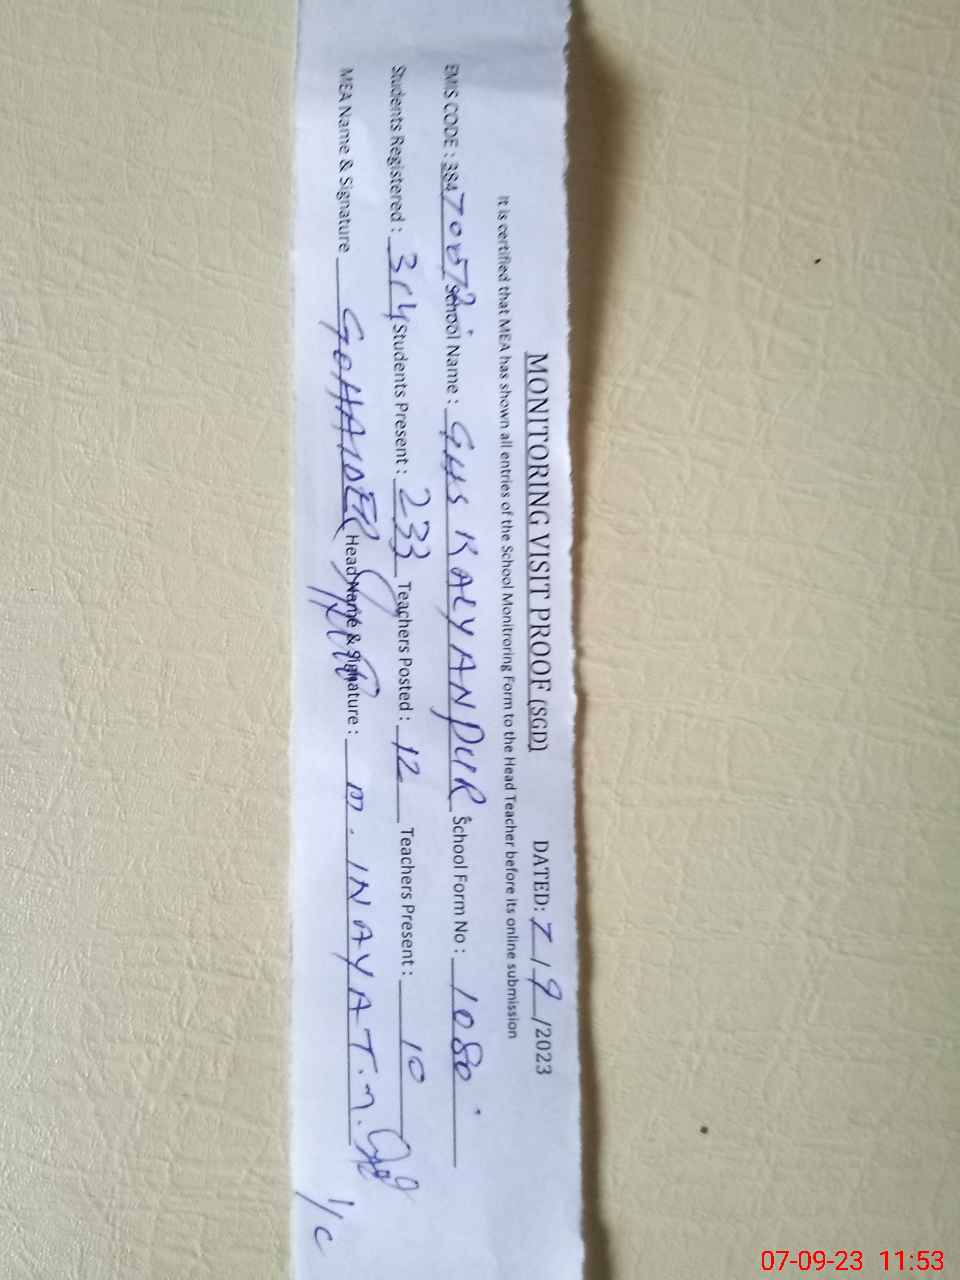 MONITORING VISIT PROOF (SGD) DATED: 7/9/2023
It is certified that MEA has shown all entries of the School Monitroring Form to the Head Teacher before its online submission
EMIS CODE : 384 School Name : GHS KALYANPUR School Form No : 1080
Students Registered : 314 Students Present : 233 Teachers Posted : 12 Teachers Present : 10
MEA Name & Signature HAIDER Head Name & Signature : M. INAYAT.
I/C
07-09-23 11:53